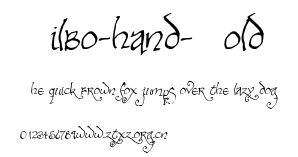 ilbo-hand- old
he quick brown fox jumps over the lazy dog
0123456789www.ztxz.org.cn